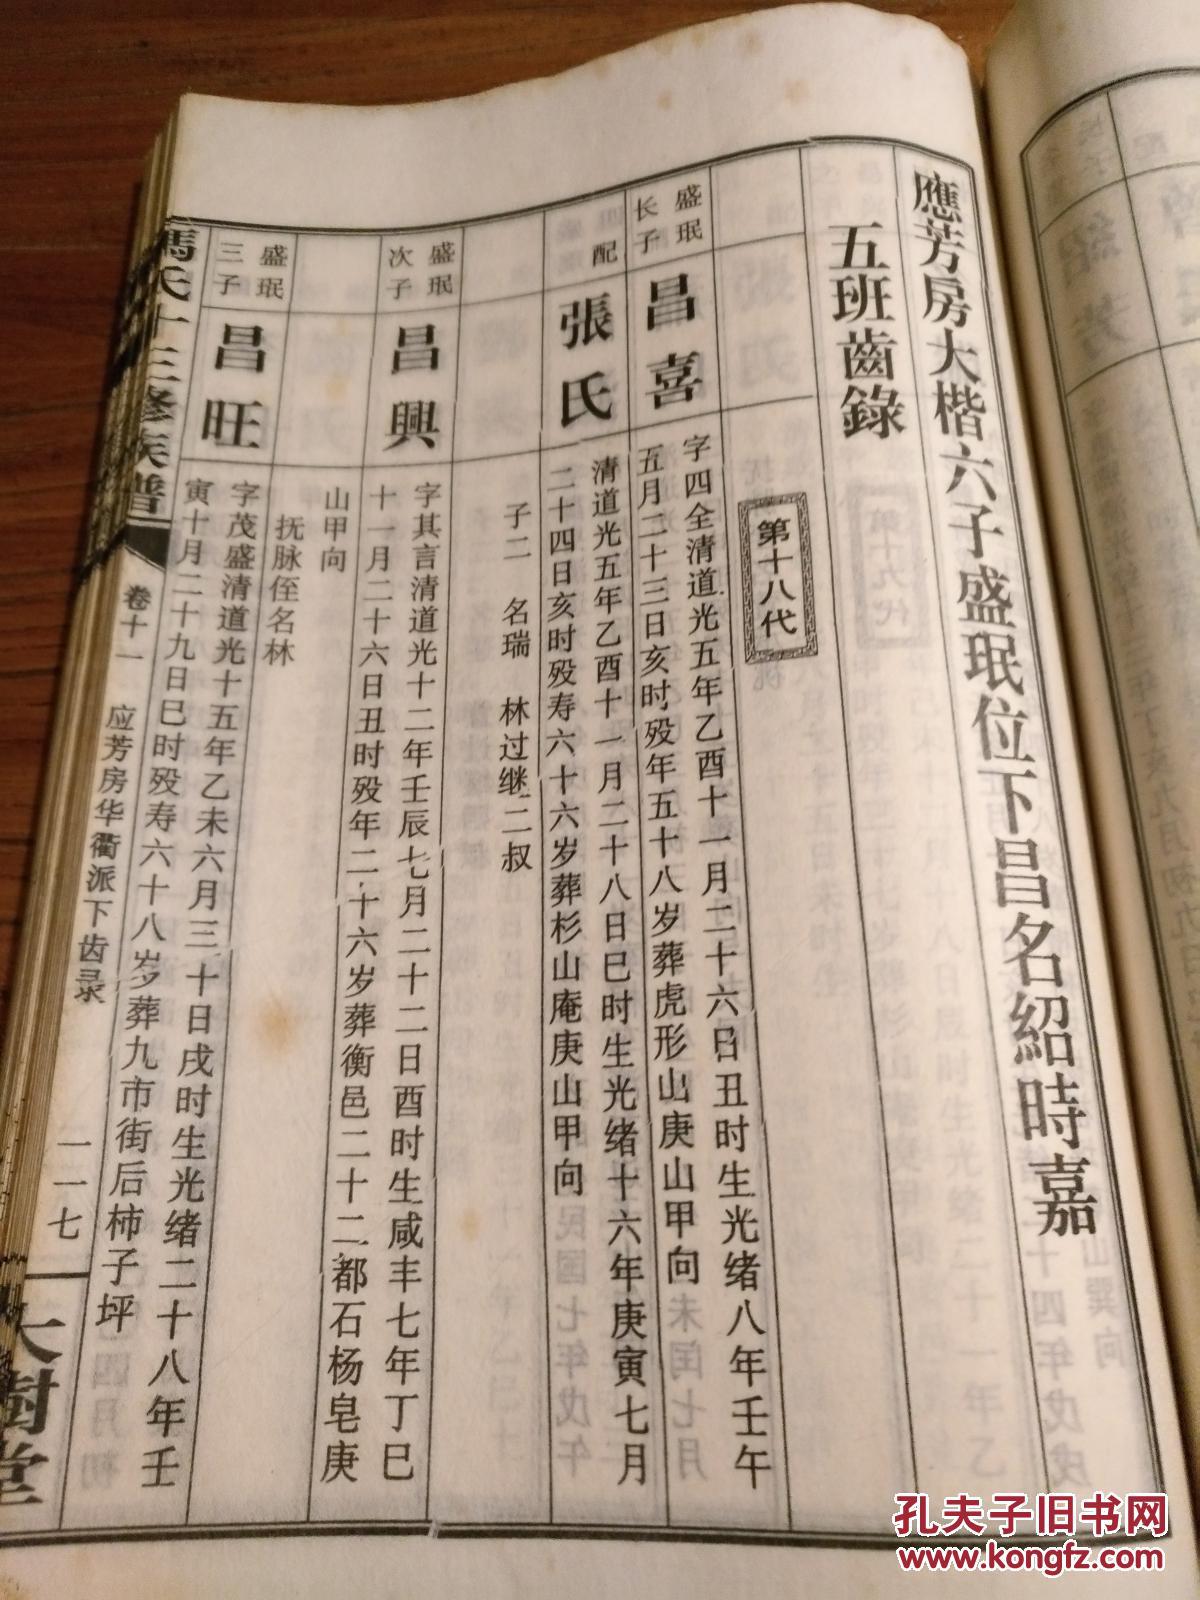 應芳房大楷六子盛珉位下昌名紹時嘉
五班齒錄
第十八代
盛珉
长子
昌喜
字四全清道光五年乙酉十一月二十六日丑时生光绪八年壬午
五月二十三日亥时殁年五十八岁葬虎形山庚山甲向
配
張氏
清道光五年乙酉十一月二十八日巳时生光绪十六年庚寅七月
二十四日亥时殁寿六十六岁葬杉山庵庚山甲向
子二　名瑞　林过继二叔
盛珉
次子
昌興
字其言清道光十二年壬辰七月二十二日酉时生咸丰七年丁巳
十一月二十六日丑时殁年二十六岁葬衡邑二十二都石杨皂庚
山甲向
抚脉侄名林
盛珉
三子
昌旺
字茂盛清道光十五年乙未六月三十日戌时生光绪二十八年壬
寅十月二十九日巳时殁寿六十八岁葬九市街后柿子坪
馮氏十三修族譜
卷十一
应芳房华衢派下齿录
一一七
大樹堂
孔夫子旧书网
www.kongfz.com